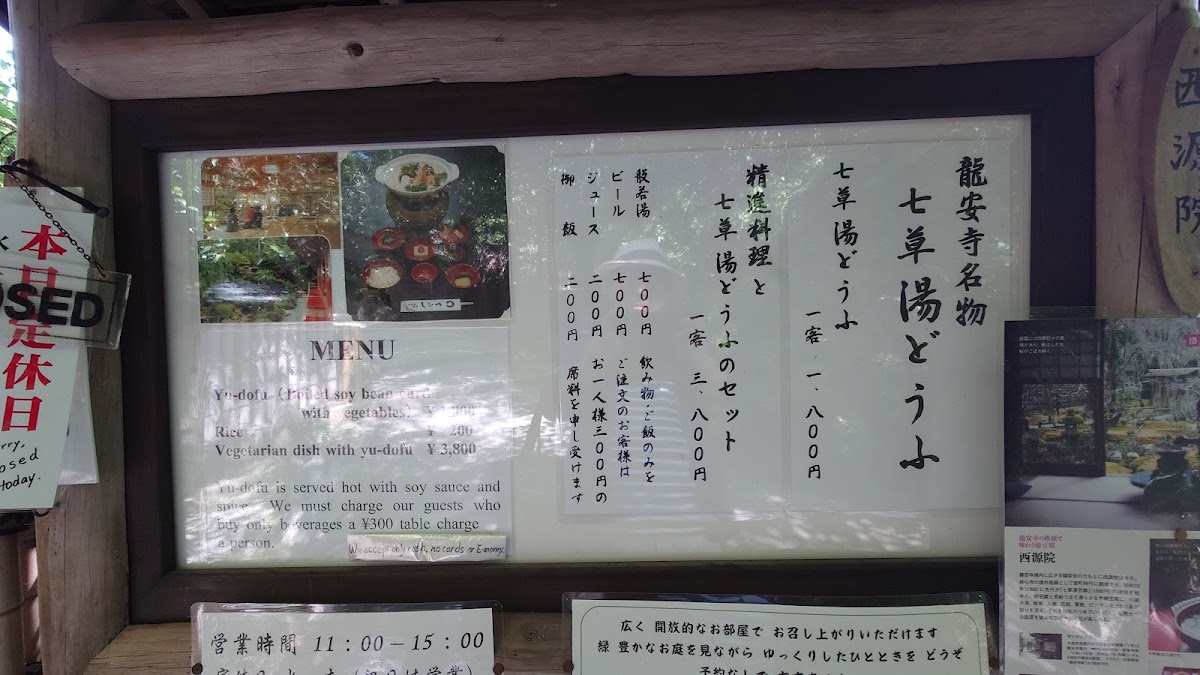 龍安寺名物
七草湯どうふ
七草湯どうふ
一客 一、八〇〇円
精進料理と
七草湯どうふのセット
一客 三、八〇〇円
般若湯 七〇〇円
ビール 七〇〇円
ジュース 二〇〇円
御飯 二〇〇円
飲み物・ご飯のみを
ご注文のお客様は
お一人様三〇〇円の
席料を申し受けます
MENU
Yu-dofu (Boiled soy bean curd
with vegetables)
Rice ¥ 200
Vegetarian dish with yu-dofu ¥3,800
Yu-dofu is served hot with soy sauce and
spice. We must charge our guests who
buy only beverages a ¥300 table charge
a person.
We accept only cash, no cards or E-money.
本日定休日
OSED
rry.
osed
today.
営業時間 11:00－15:00
広く 開放的なお部屋で お召し上がりいただけます
緑 豊かなお庭を見ながら ゆっくりしたひとときを どうぞ
西源院
西源院